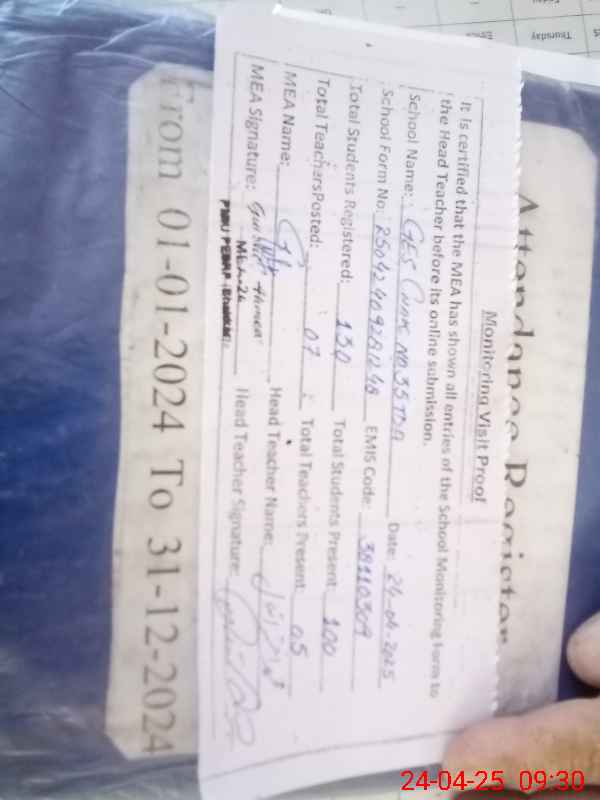 Thursday
Attendance Register
Monitoring Visit Proof
It is certified that the MEA has shown all entries of the School Monitoring Form to
the Head Teacher before its online submission.
School Name: GES Chak No. 35 TDA Date: 24-04-2025
School Form No: EMIS Code: 38110309
Total Students Registered: 130 Total Students Present 100
Total Teachers Posted: 07 Total Teachers Present 05
MEA Name: Head Teacher Name:
MEA Signature: Head Teacher Signature:
MEA-26
From 01-01-2024 To 31-12-2024
24-04-25 09:30